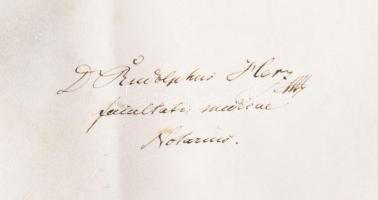 D Rudolphus Herz
facultatis medicae
Notarius.